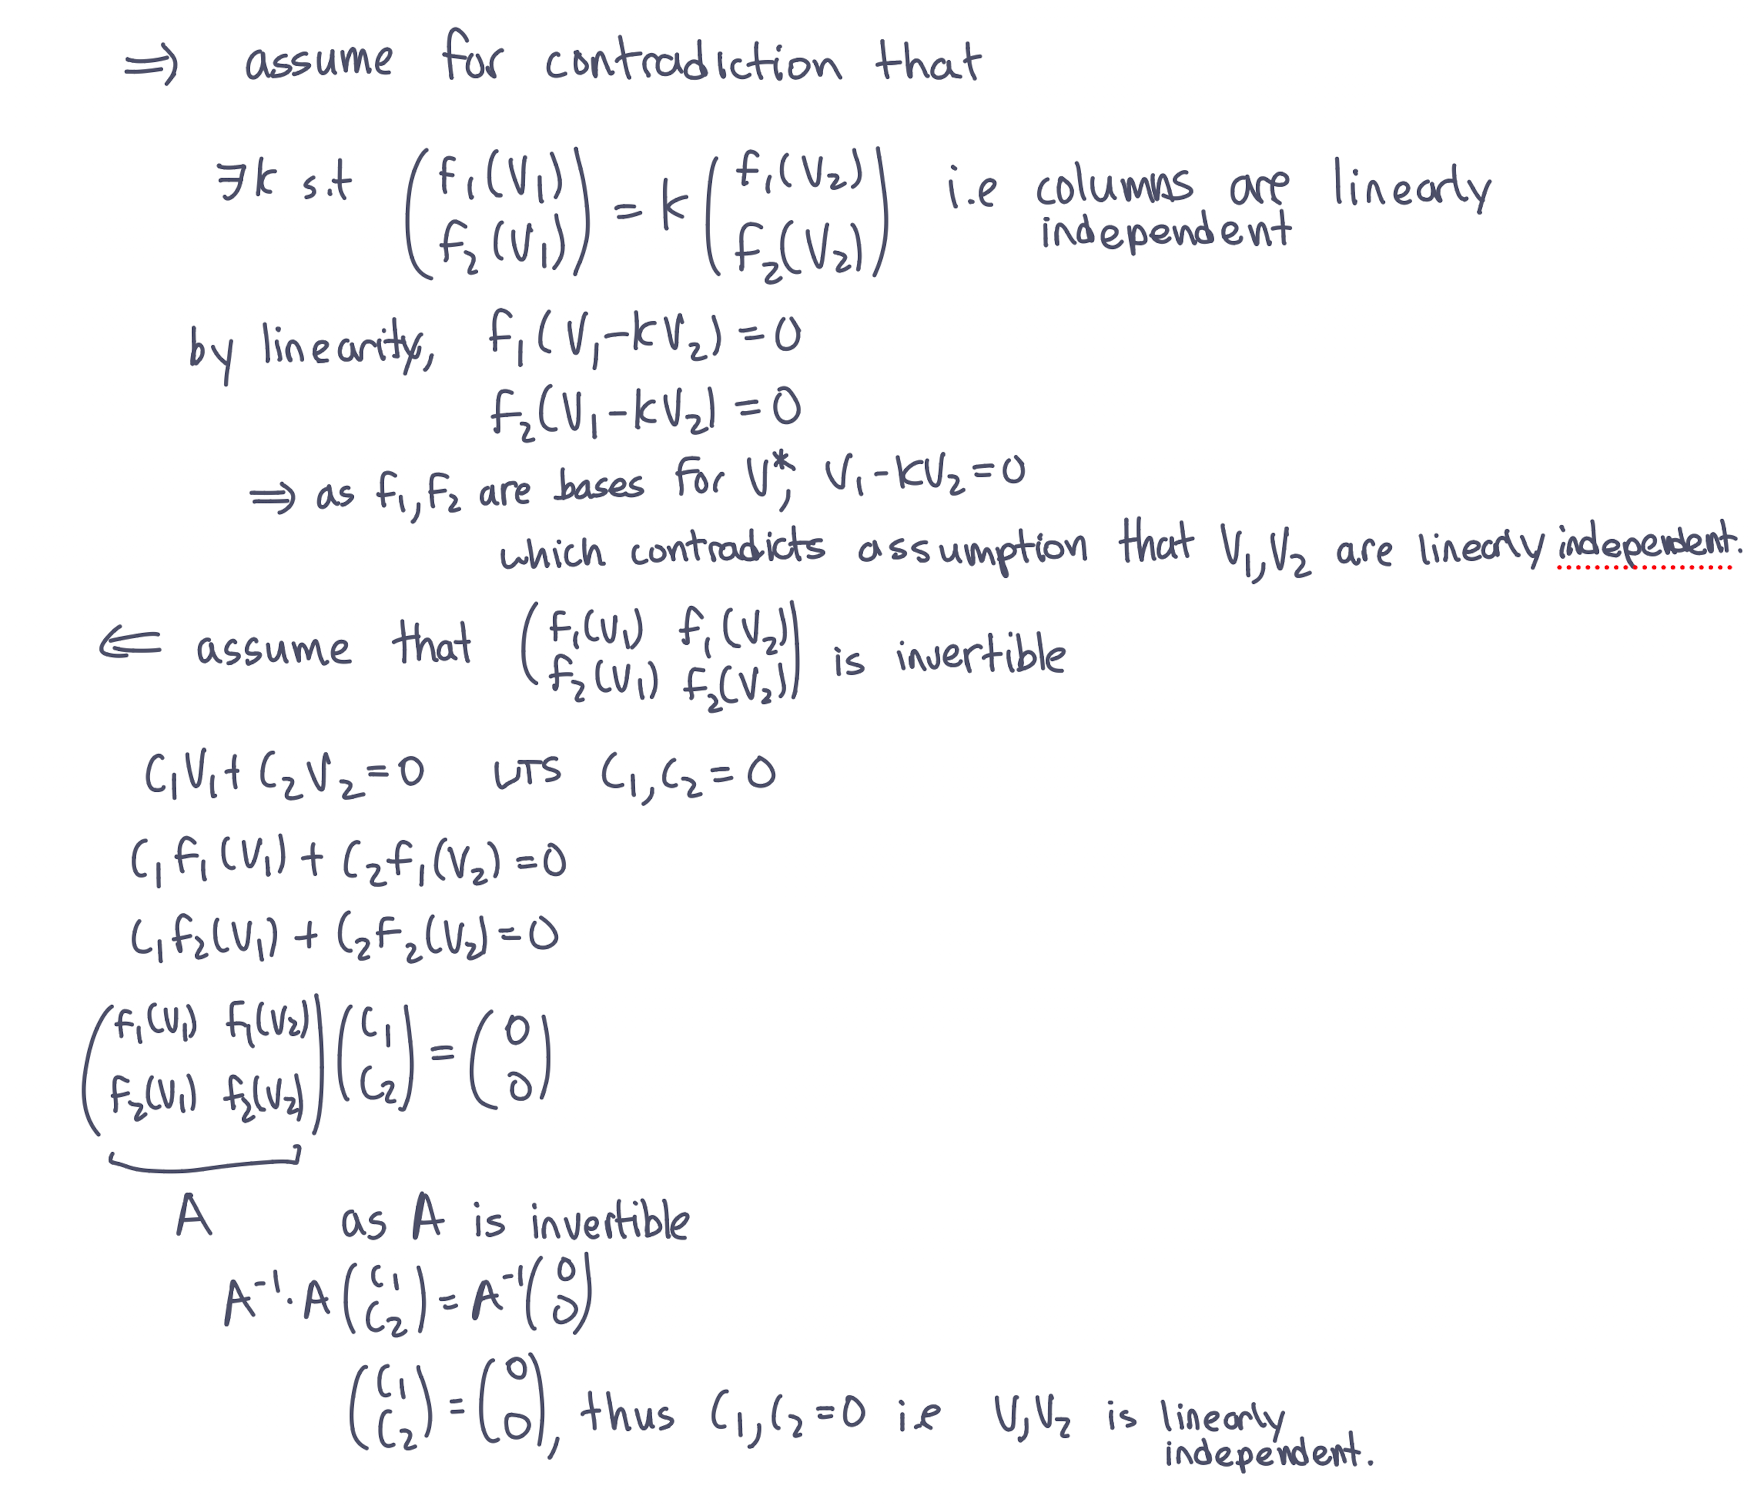 ⇒ assume for contradiction that
∃k s.t (f₁(V₁) f₂(V₁)) = k (f₁(V₂) f₂(V₂)) i.e columns are linearly independent
by linearity, f₁(V₁-kV₂) = 0
f₂(V₁-kV₂) = 0
⇒ as f₁,f₂ are bases for V*, V₁-kV₂=0
which contradicts assumption that V₁,V₂ are linearly independent.
⇐ assume that (f₁(V₁) f₁(V₂) f₂(V₁) f₂(V₂)) is invertible
C₁V₁+C₂V₂=0 WTS C₁,C₂=0
C₁f₁(V₁)+C₂f₁(V₂)=0
C₁f₂(V₁)+C₂f₂(V₂)=0
(f₁(V₁) f₁(V₂) f₂(V₁) f₂(V₂)) (C₁ C₂) = (0 0)
A as A is invertible
A⁻¹·A (C₁ C₂) = A⁻¹ (0 0)
(C₁ C₂) = (0 0), thus C₁,C₂=0 i.e V₁,V₂ is linearly independent.